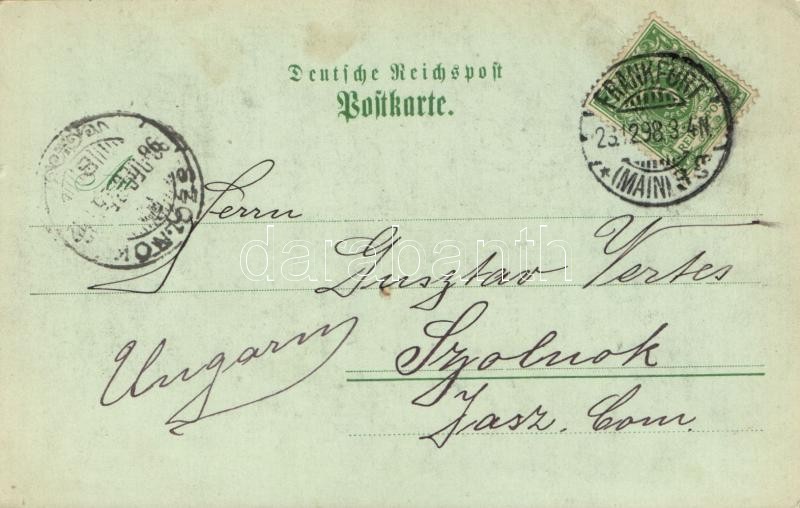 Deutsche Reichspost
Postkarte.
FRANKFURT
23.12.98.3-4N.
* (MAIN)
SZOLNOK
98 DEC 25
darabanth
Herrn
Gusztav Vertes
Ungarn
Szolnok
Jasz. Com.